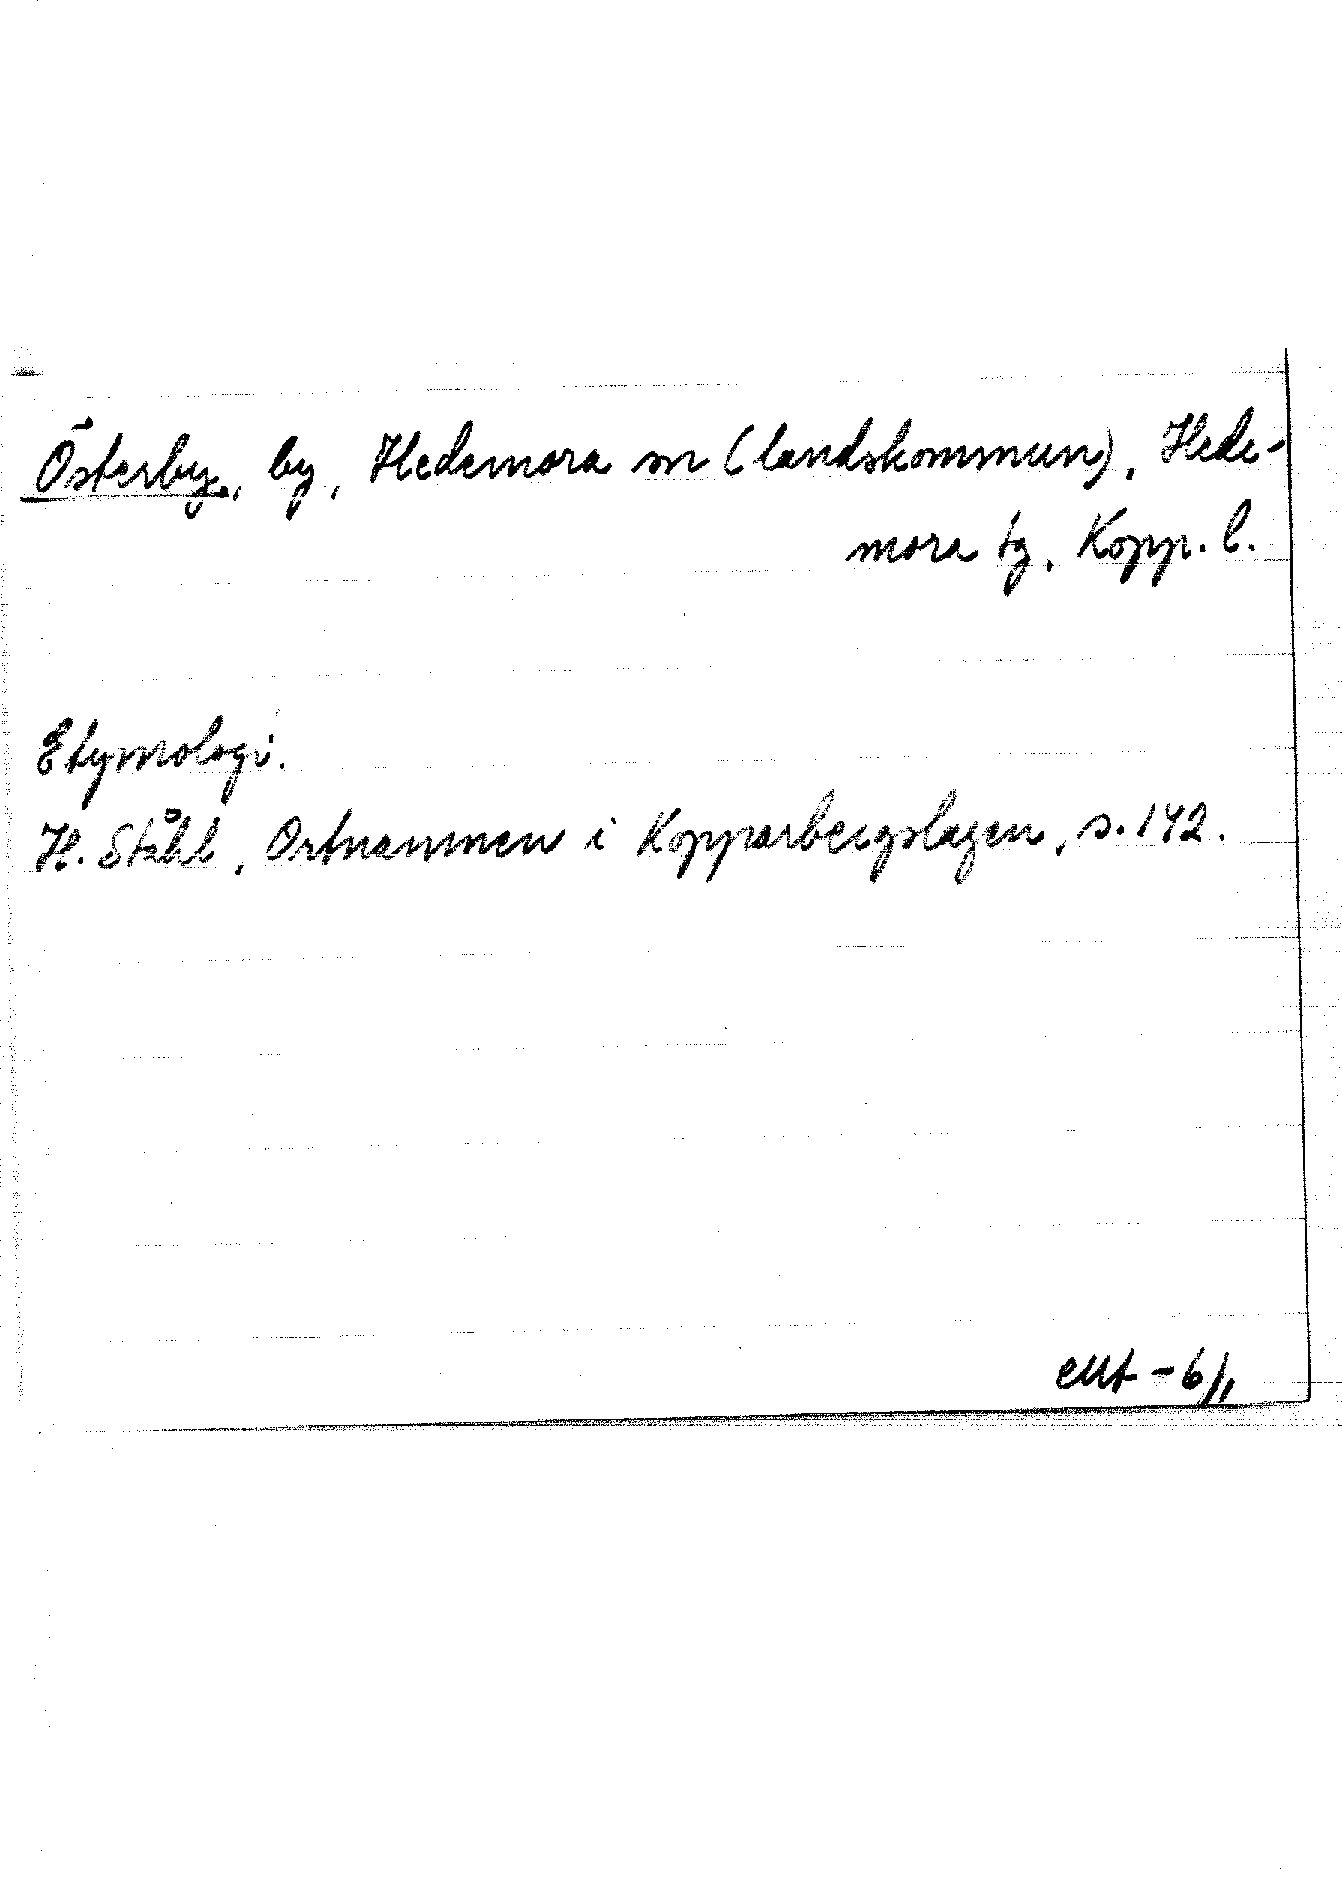 Österby, by, Hedemora sn (landskommun), Hede-
mora tg, Kopp. l.
Etymologi.
H. Ståhl, Ortnamnen i Kopparbergslagen, s. 142.